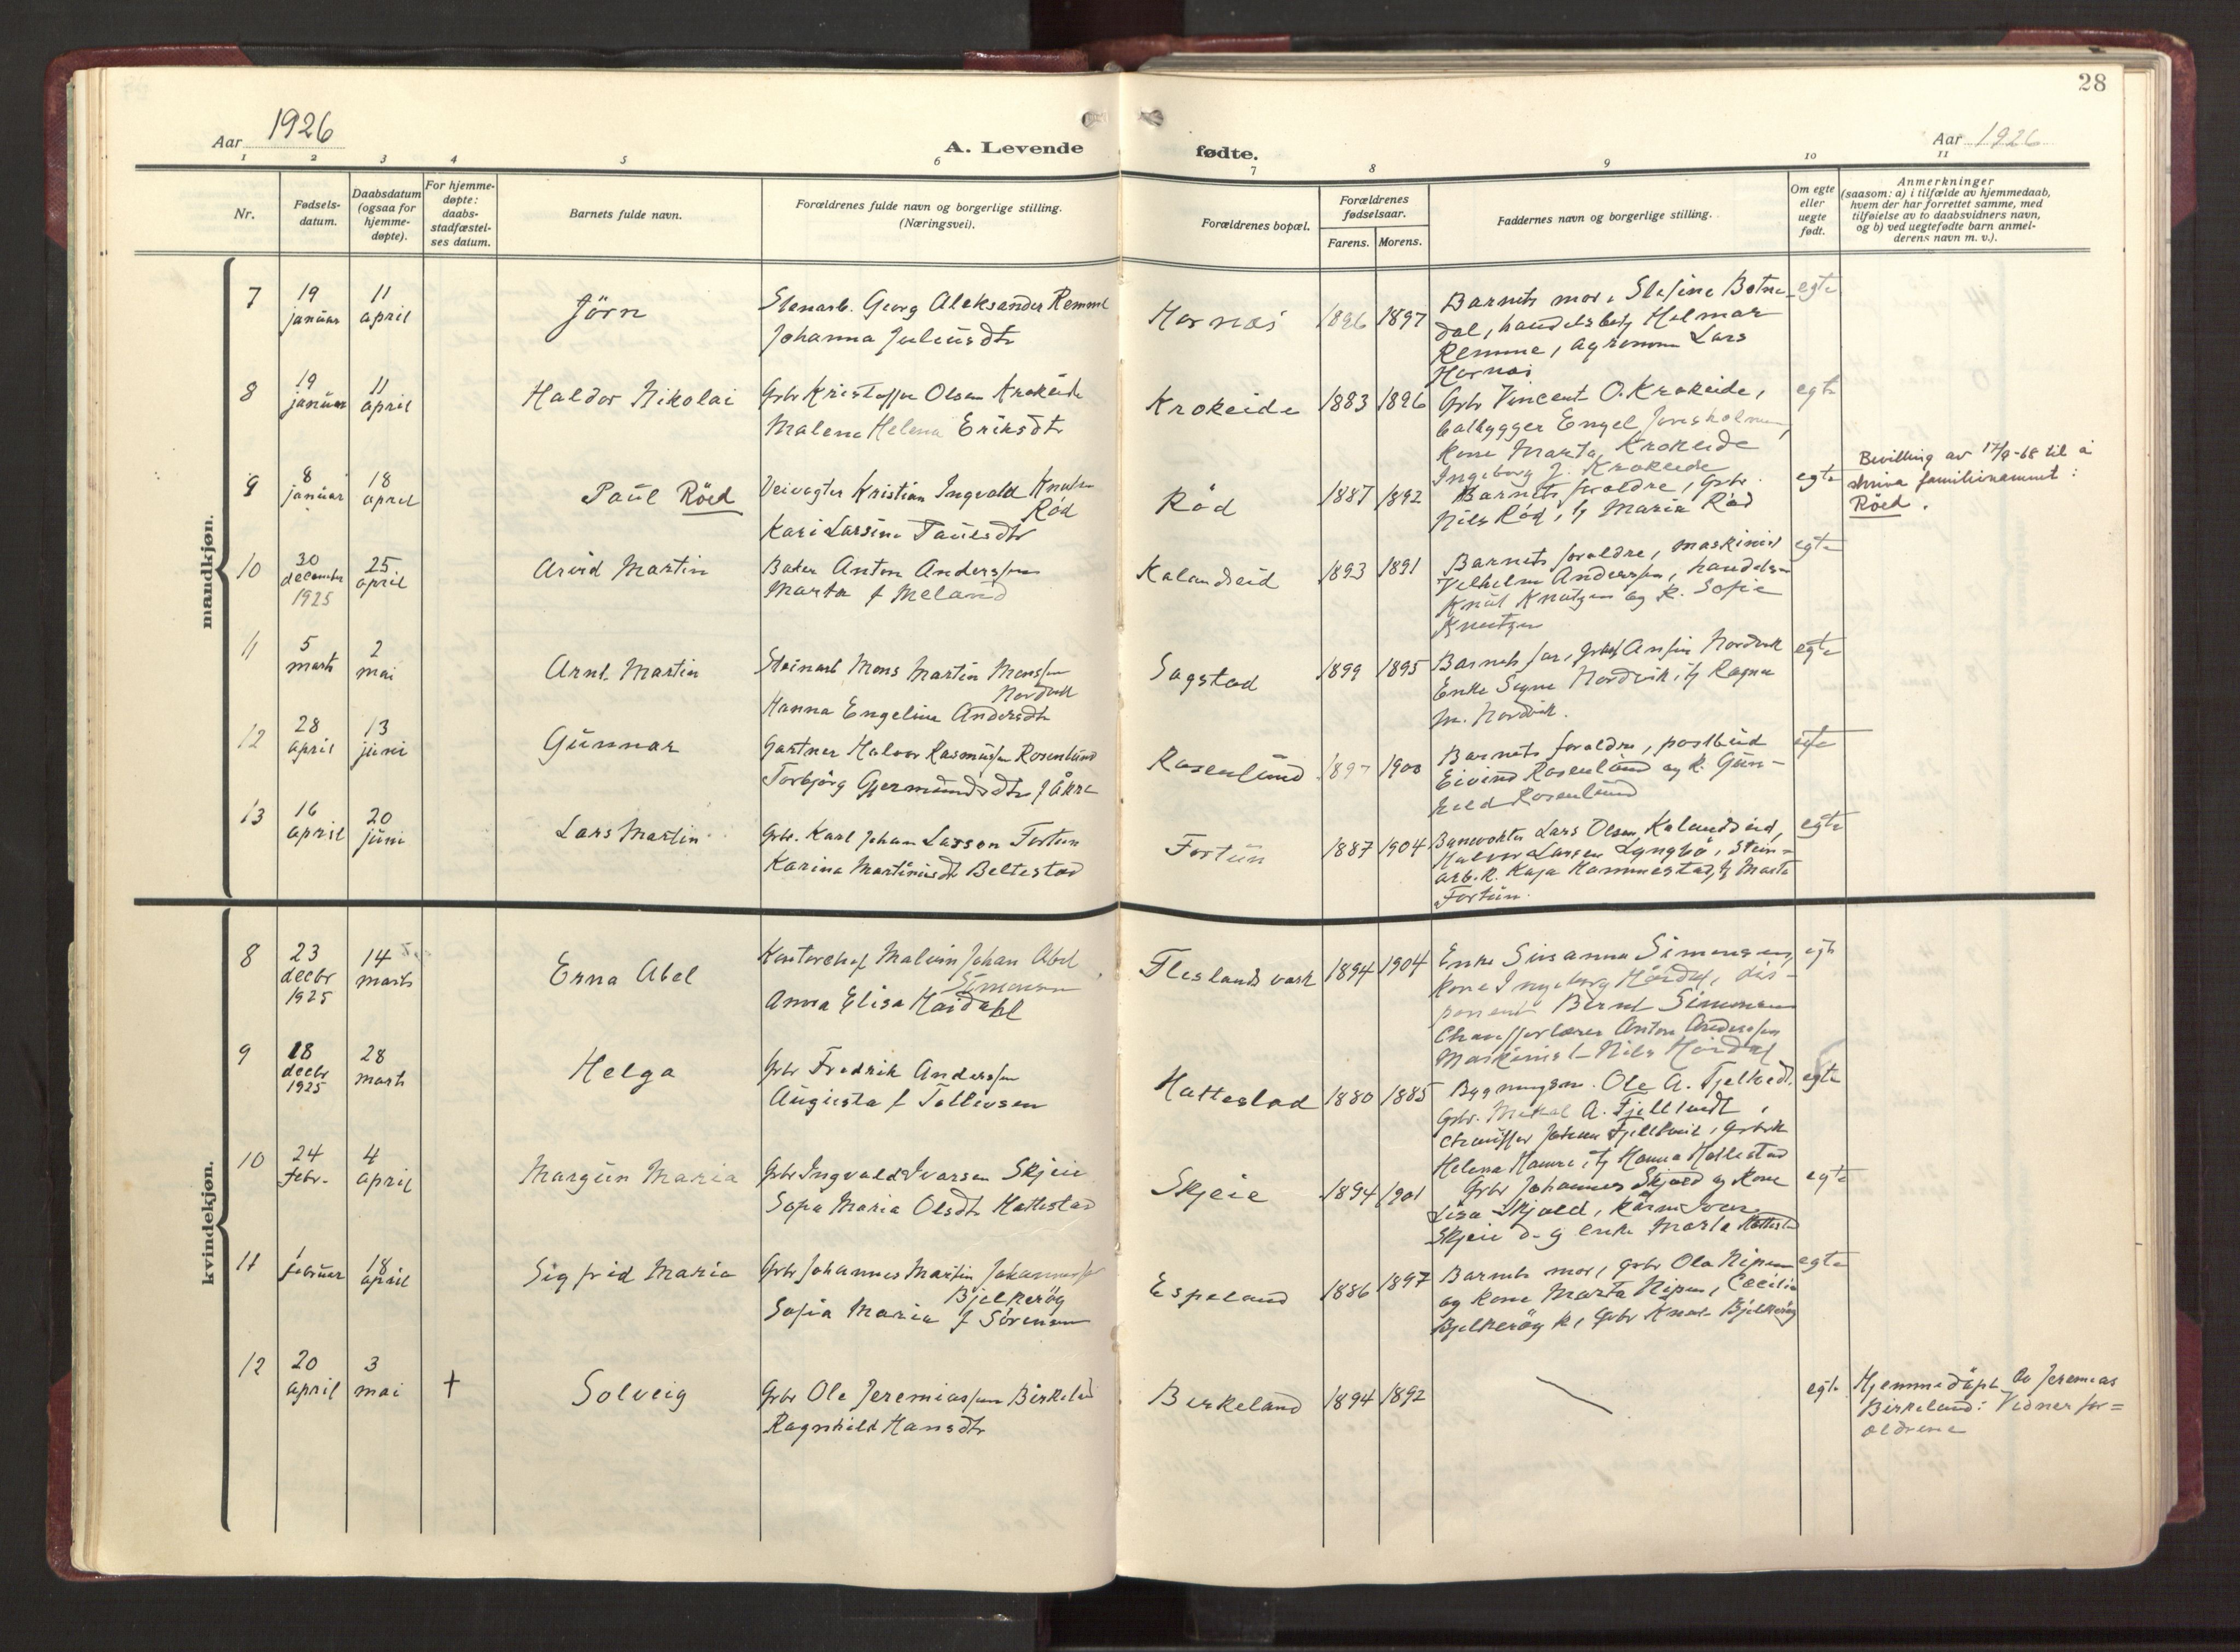 28
Aar 1926
A. Levende fødte.
Aar 1926
1 2 3 4 5 6 7 8 9 10 11
Nr.
Fødsels-
datum.
Daabsdatum
(ogsaa for
hjemme-
døpte).
For hjemme-
døpte:
daabs-
stadfæstel-
ses datum.
Barnets fulde navn.
Forældrenes fulde navn og borgerlige stilling.
(Næringsvei).
Forældrenes bopæl.
Forældrenes
fødselsaar.
Farens. Morens.
Faddernes navn og borgerlige stilling.
Om egte
eller
uegte
født.
Anmerkninger
(saasom: a) i tilfælde av hjemmedaab,
hvem der har forrettet samme, med
tilføielse av to daabsvidners navn,
og b) ved uegtefødte barn anmel-
derens navn m. v.).
mandkjøn.
7
19
januar
11
april
Jörn
Stenarb. Georg Aleksander Remme
Johanna Juliusdtr
Hornæs
1896 1897
Barnets mor, Stefine Botne-
dal, handelsbetj Holmar
Remme, agronom Lars
Hornæs
egte
8
19
januar
11
april
Haldor Nikolai
Grbr Kristoffer Olsen Krokeide
Malene Helena Eriksdtr
Krokeide
1883 1896
Grbr Vincent O. Krokeide,
batbygger Engel Jonsholmen,
kone Marta Krokeide
Ingeborg J. Krokeide
egte
9
8
januar
18
april
Paul Röed
Veivogter Kristian Ingvald Knuts
Rød
Kari Larsine Paulsdtr
Rød
1887 1892
Barnets foraldre, Grbr.
Nils Rød, tj Maria Rød
egte
Bevilling av 17/9-68 til å
skrive familienamnet:
Röed.
10
30
december
1925
25
april
Arvid Martin
Baker Anton Anderssen
Marta f Meland
Kalandseid
1893 1891
Barnets foraldre, maskinist
Vilhelm Anderssen, handelsm
Knut Knutzen og k. Sofie
Knutzen
egte
11
5
marts
2
mai
Arnt Martin
Steinarb Mons Martin Monssen
Nordvik
Hanna Engeline Andersdtr
Sagstad
1899 1895
Barnets far, Ansin Nordvik
Enke Signe Nordvik, tj Ragna
M. Nordvik.
egte
12
28
april
13
juni
Gunnar
Gartner Halvor Rasmussen Rosenlund
Torbjörg Gjermundsdtr f Åkre
Rosenlund
1897 1900
Barnets foraldre, postbud
Eivind Rosenlund og k. Gun-
hild Rosenlund
egte
13
16
april
20
juni
Lars Martin
Grbr. Karl Johan Larsson Fortun
Karina Martinusdtr Beltestad
Fortun
1887 1904
Banevokter Lars Olsen Kalandseid,
Halvor Larsen Lyngbö, stein-
arb. k. Kaja Hammestad, tj Marta
Fortun.
egte
kvindekjøn.
8
23
decbr
1925
14
marts
Erna Abel
Kontorchef Malvin Johan Abel
Simonsen
Anna Elisa Hordahl
Fleslands vark
1894 1904
Enke Susanna Simonsen
kone Ingeborg Hordal, dis-
ponent Bernt Simonsen
Chauffeurlærer Anton Anderssen
Maskinist Nils Hordal
egte
9
18
decbr
1925
28
marts
Helga
Grbr Fredrik Anderssen
Augusta f Tollevsen
Hattestad
1880 1885
Bygningsm. Ole A. Fjeltvedt,
Grbr. Mikal A. Fjelltvedt,
Chauffer Johan Fjelltveit, Grbrk
Helena Hamre, tj Hanna Hattestad
egte
10
24
febr.
4
april
Margun Maria
Grbr Ingvald Ivarsen Skjeie
Sofia Maria Olsdtr Hattestad
Skjeie
1894 1901
Grbr Johannes Skjold og kone
Lisa Skjold, Karen Ivars
Skjeie d. g enke Marta Hattestad
egte
11
1
februar
18
april
Sigfrid Maria
Grbr Johannes Martin Johannessen
Bjelkeröy
Sofia Maria f Sörensen
Espeland
1886 1897
Barnets mor, Grbr Ola Nipen
og kone Marta Nipen, Cecilie
Bjelkeröy k, Grbr Knut Bjelkeröy
egte
12
20
april
3
mai
+
Solveig
Grbr Ole Jeremiassen Birkeland
Ragnhild Hansdtr
Birkeland
1894 1892
egte
Hjemmedöpt av Jeremias
Birkeland: Vidner for=
aldrene